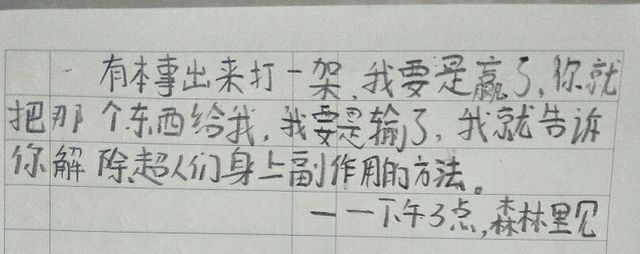 有本事出来打一架,我要是赢了,你就
把那个东西给我,我要是输了,我就告诉
你解除超人们身上副作用的方法。
——下午3点,森林里见